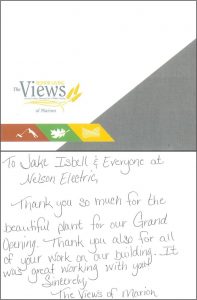 The Views
of Marion
To Jake Isbell & Everyone at
Nelson Electric,
Thank you so much for the
beautiful plant for our Grand
Opening. Thank you also for all
of your work on our building. It
was great working with you!
Sincerely,
The Views of Marion